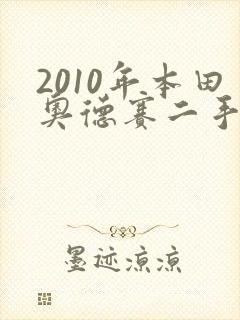 2010年本田
奥德赛二手
墨迹凉凉